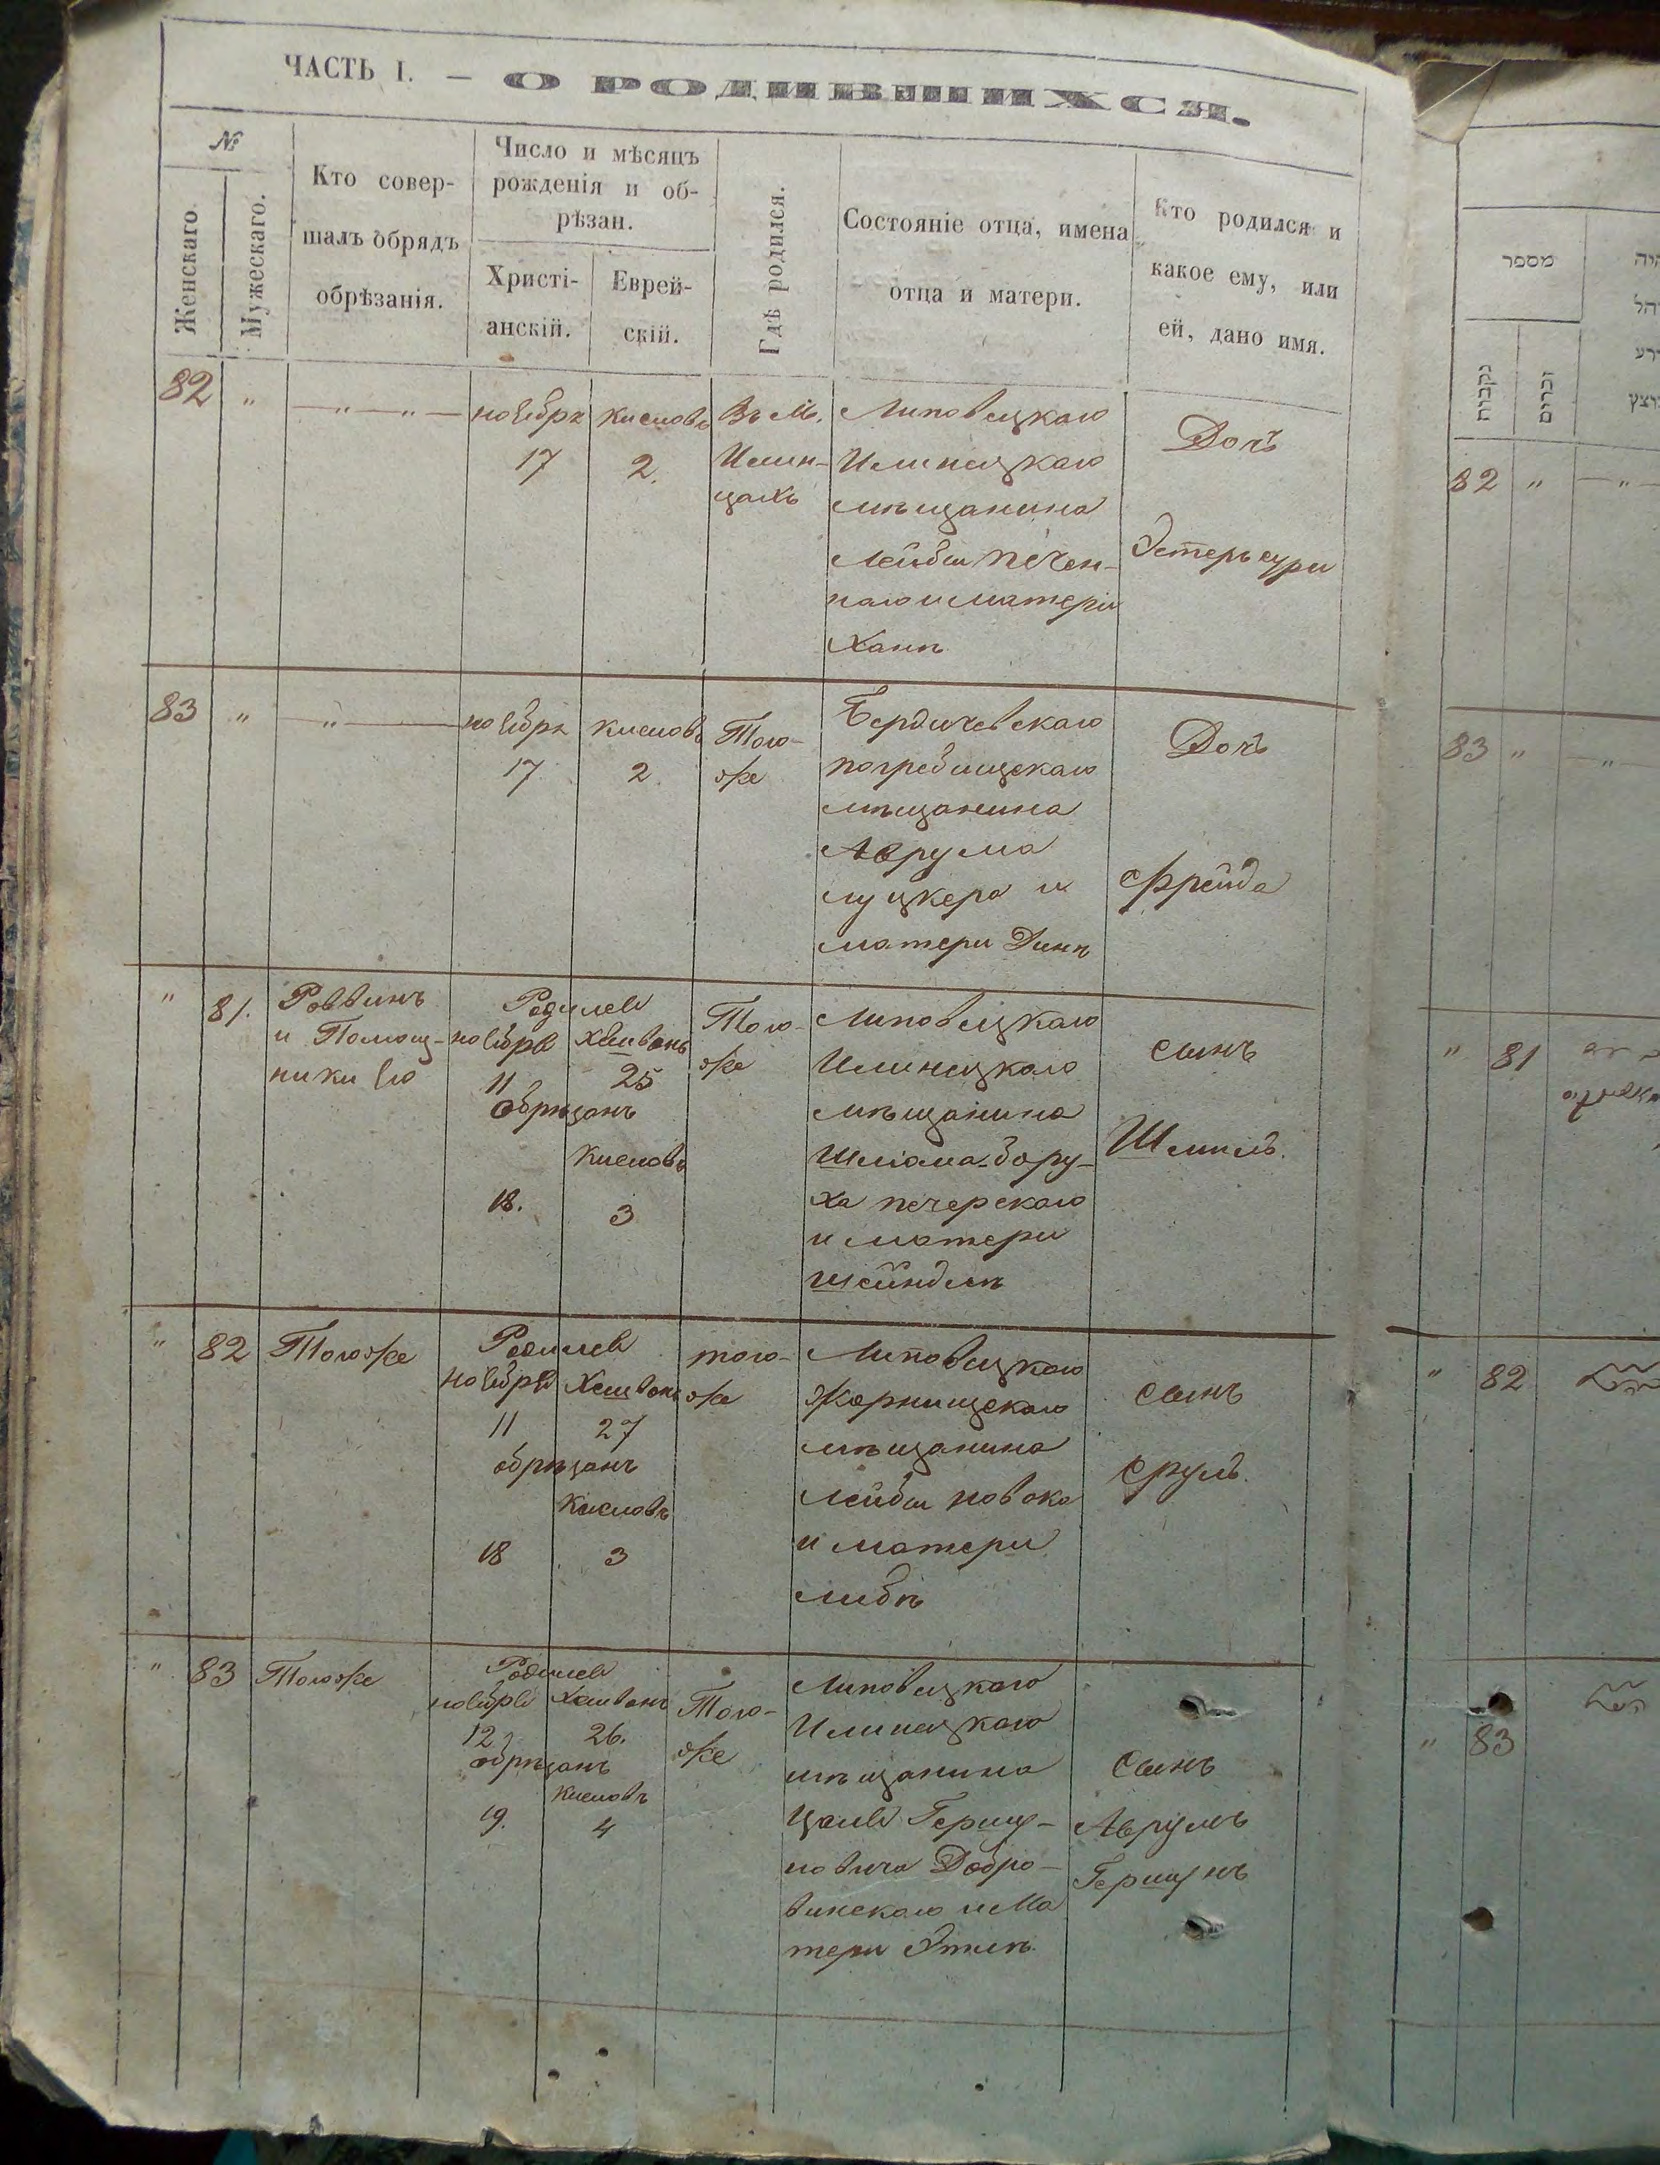 ЧАСТЬ I. — О РОДИВШИХСЯ.
№
Женскаго.
Мужескаго.
Кто совер-
шалъ обрядъ
обрѣзанія.
Число и мѣсяцъ
рожденія и об-
рѣзан.
Христі-
анскій.
Еврей-
скій.
Гдѣ родился.
Состояніе отца, имена
отца и матери.
Кто родился и
какое ему, или
ей, дано имя.
82 " — " — " —
ноября
17
кисловъ
2.
Въ М.
Илин-
цахъ
Липовецкаго
Илинецкаго
мѣщанина
Лейбы печен-
наго и матери
Ханѣ
Дочь
Эстеръ сура
83 " — " —
ноября
17
кисловъ
2
Того-
же
Бердичевскаго
погребищскаго
мѣщанина
Аврума
луцкера и
матери Динѣ
Дочь
Фрейда
" 81.
Раввинъ
и Помощ-
ники Его
Родился
ноября Хешванъ
11 25
обрѣзанъ
кисловъ
18. 3
Того-
же
Липовецкаго
Илинецкаго
мѣщанина
Шлома-бору-
ха печерскаго
и матери
шейндлѣ
сынъ
Шмиль.
" 82 Тогоже
Родился
ноября Хешванъ
11 27
обрѣзанъ
Кисловъ
18 3
того-
же
Липовецкаго
Жорнищскаго
мѣщанина
лейбы новака
и матери
либѣ
сынъ
сруль.
" 83 Тогоже
Родился
ноября Хешванъ
12 26.
обрѣзанъ
кисловъ
19. 4
Того-
же
Липовецкаго
Илинецкаго
мѣщанина
Цаля Гершу-
новича Добро-
винскаго и Ма
тери Этлѣ
сынъ
Аврумъ
Гершунъ
מספר
נקבות
זכרים
82 " — " —
83 " — " —
" 81
" 82
" 83